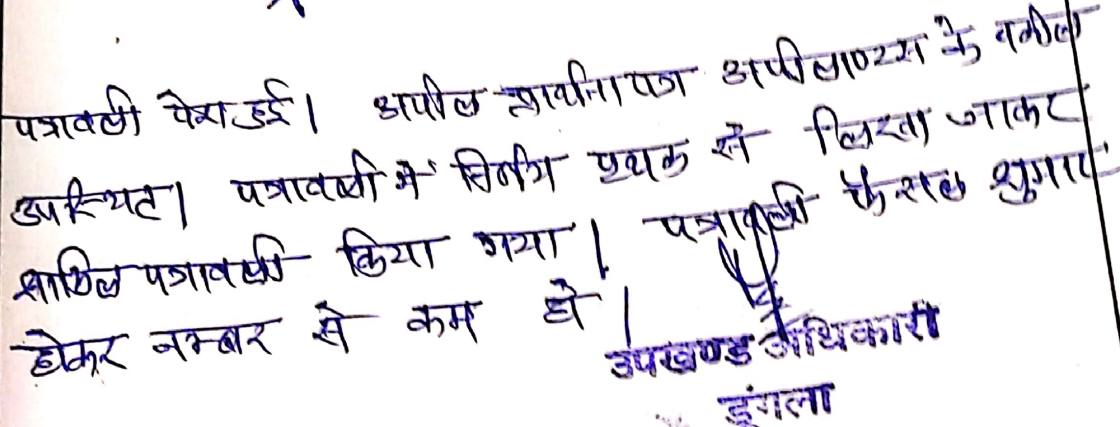 पत्रावली पेश हुई। अपील प्रार्थना पत्र अपीलाण्टस के वकील
उपस्थित। पत्रावली में निर्णय पृथक से लिखा जाकर
शामिल पत्रावली किया गया। पत्रावली फैसल शुमार
होकर नम्बर से कम हो।
उपखण्ड अधिकारी
डूंगला